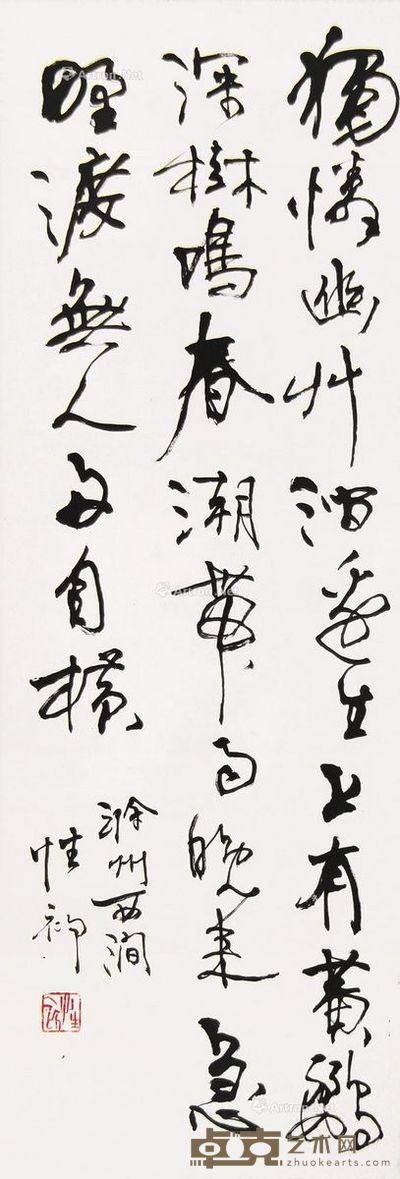 獨憐幽草澗邊生上有黃鸝
深樹鳴春潮帶雨晚來急
野渡無人舟自橫
滁州西澗
卓克艺术网
zhuokearts.com